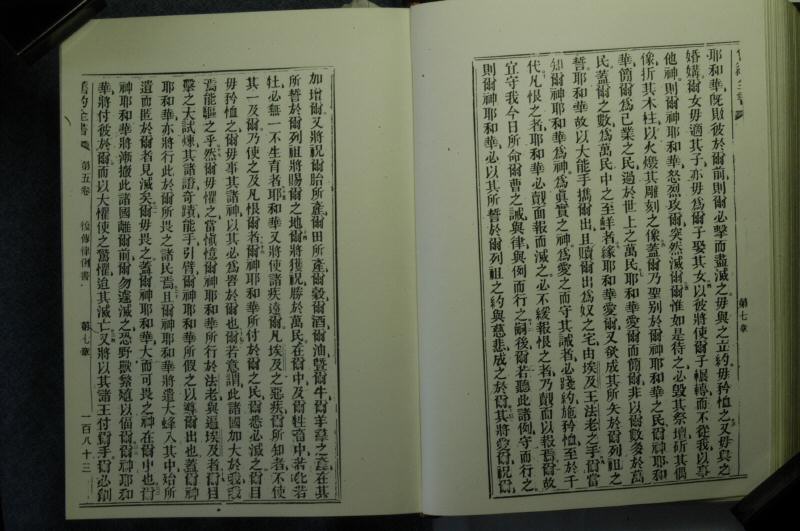 第七章
耶和華既敗彼於爾前則爾必擊而盡滅之毋與之立約毋矜恤之又毋與之
婚媾爾女毋適其子亦毋為爾子娶其女以彼將使爾子輾轉而不從我以事
他神則爾神耶和華怒烈攻爾突然滅爾爾惟如是待之必毀其祭壇斫其偶
像折其木柱以火燬其雕刻之像蓋爾乃聖别於爾神耶和華之民爾神耶和
華簡爾為己業之民過於世上之萬民耶和華愛爾而簡爾非以爾數多於萬
民蓋爾之數為萬民中之至鮮者緣耶和華愛爾又欲成其所矢於爾列祖之
誓耶和華故以大能手攜爾出且贖爾出為奴之宅由埃及王法老之手爾當
知爾神耶和華為神為真實之神為愛之而守其誡者必踐約施矜恤至於千
代凡恨之者耶和華必覿面報而滅之必不緩報恨之者乃覿面以報焉爾故
宜守我今日所命爾曹之誡與律與例而行之嗣後爾若聽此諸例守而行之
則爾神耶和華必以其所誓於爾列祖之約與慈悲成之於爾其將愛爾祝爾
加增爾又將祝爾胎所產爾田所產爾穀爾酒爾油曁爾牛爾羊羣之
所誓於爾列祖將賜爾之地爾將獲祝勝於萬民在爾中及爾牲畜中若牝若
牡必無一不生育者耶和華又將使諸疾遠爾凡埃及之惡疾爾所知者不使
其一及爾乃使之及凡恨爾者爾神耶和華所付於爾之民爾悉必滅之爾目
毋矜恤之爾毋事其諸神以其必為罟於爾也爾若意謂此諸國加大於我我
焉能驅之乎然爾毋懼之當憶爾神耶和華所行於法老與通埃及者爾目
擊之大試煉其諸證奇蹟能手引臂爾神耶和華所假之以導爾出也蓋爾神
耶和華亦將行此於爾所畏之諸民焉且爾神耶和華將遣大蜂入其中殆所
遺而匿於爾者見滅矣爾毋畏之蓋爾神耶和華大而可畏之神在爾中也爾
神耶和華將漸撤此諸國離爾前爾勿遽滅之恐野獸繁殖以偪爾爾神耶和
華將付彼於爾而以大懼使之驚懼迨其滅亡又將以其諸王付爾手爾必創
舊約全書 第五卷 復傳律例書 第七章 一百八十三